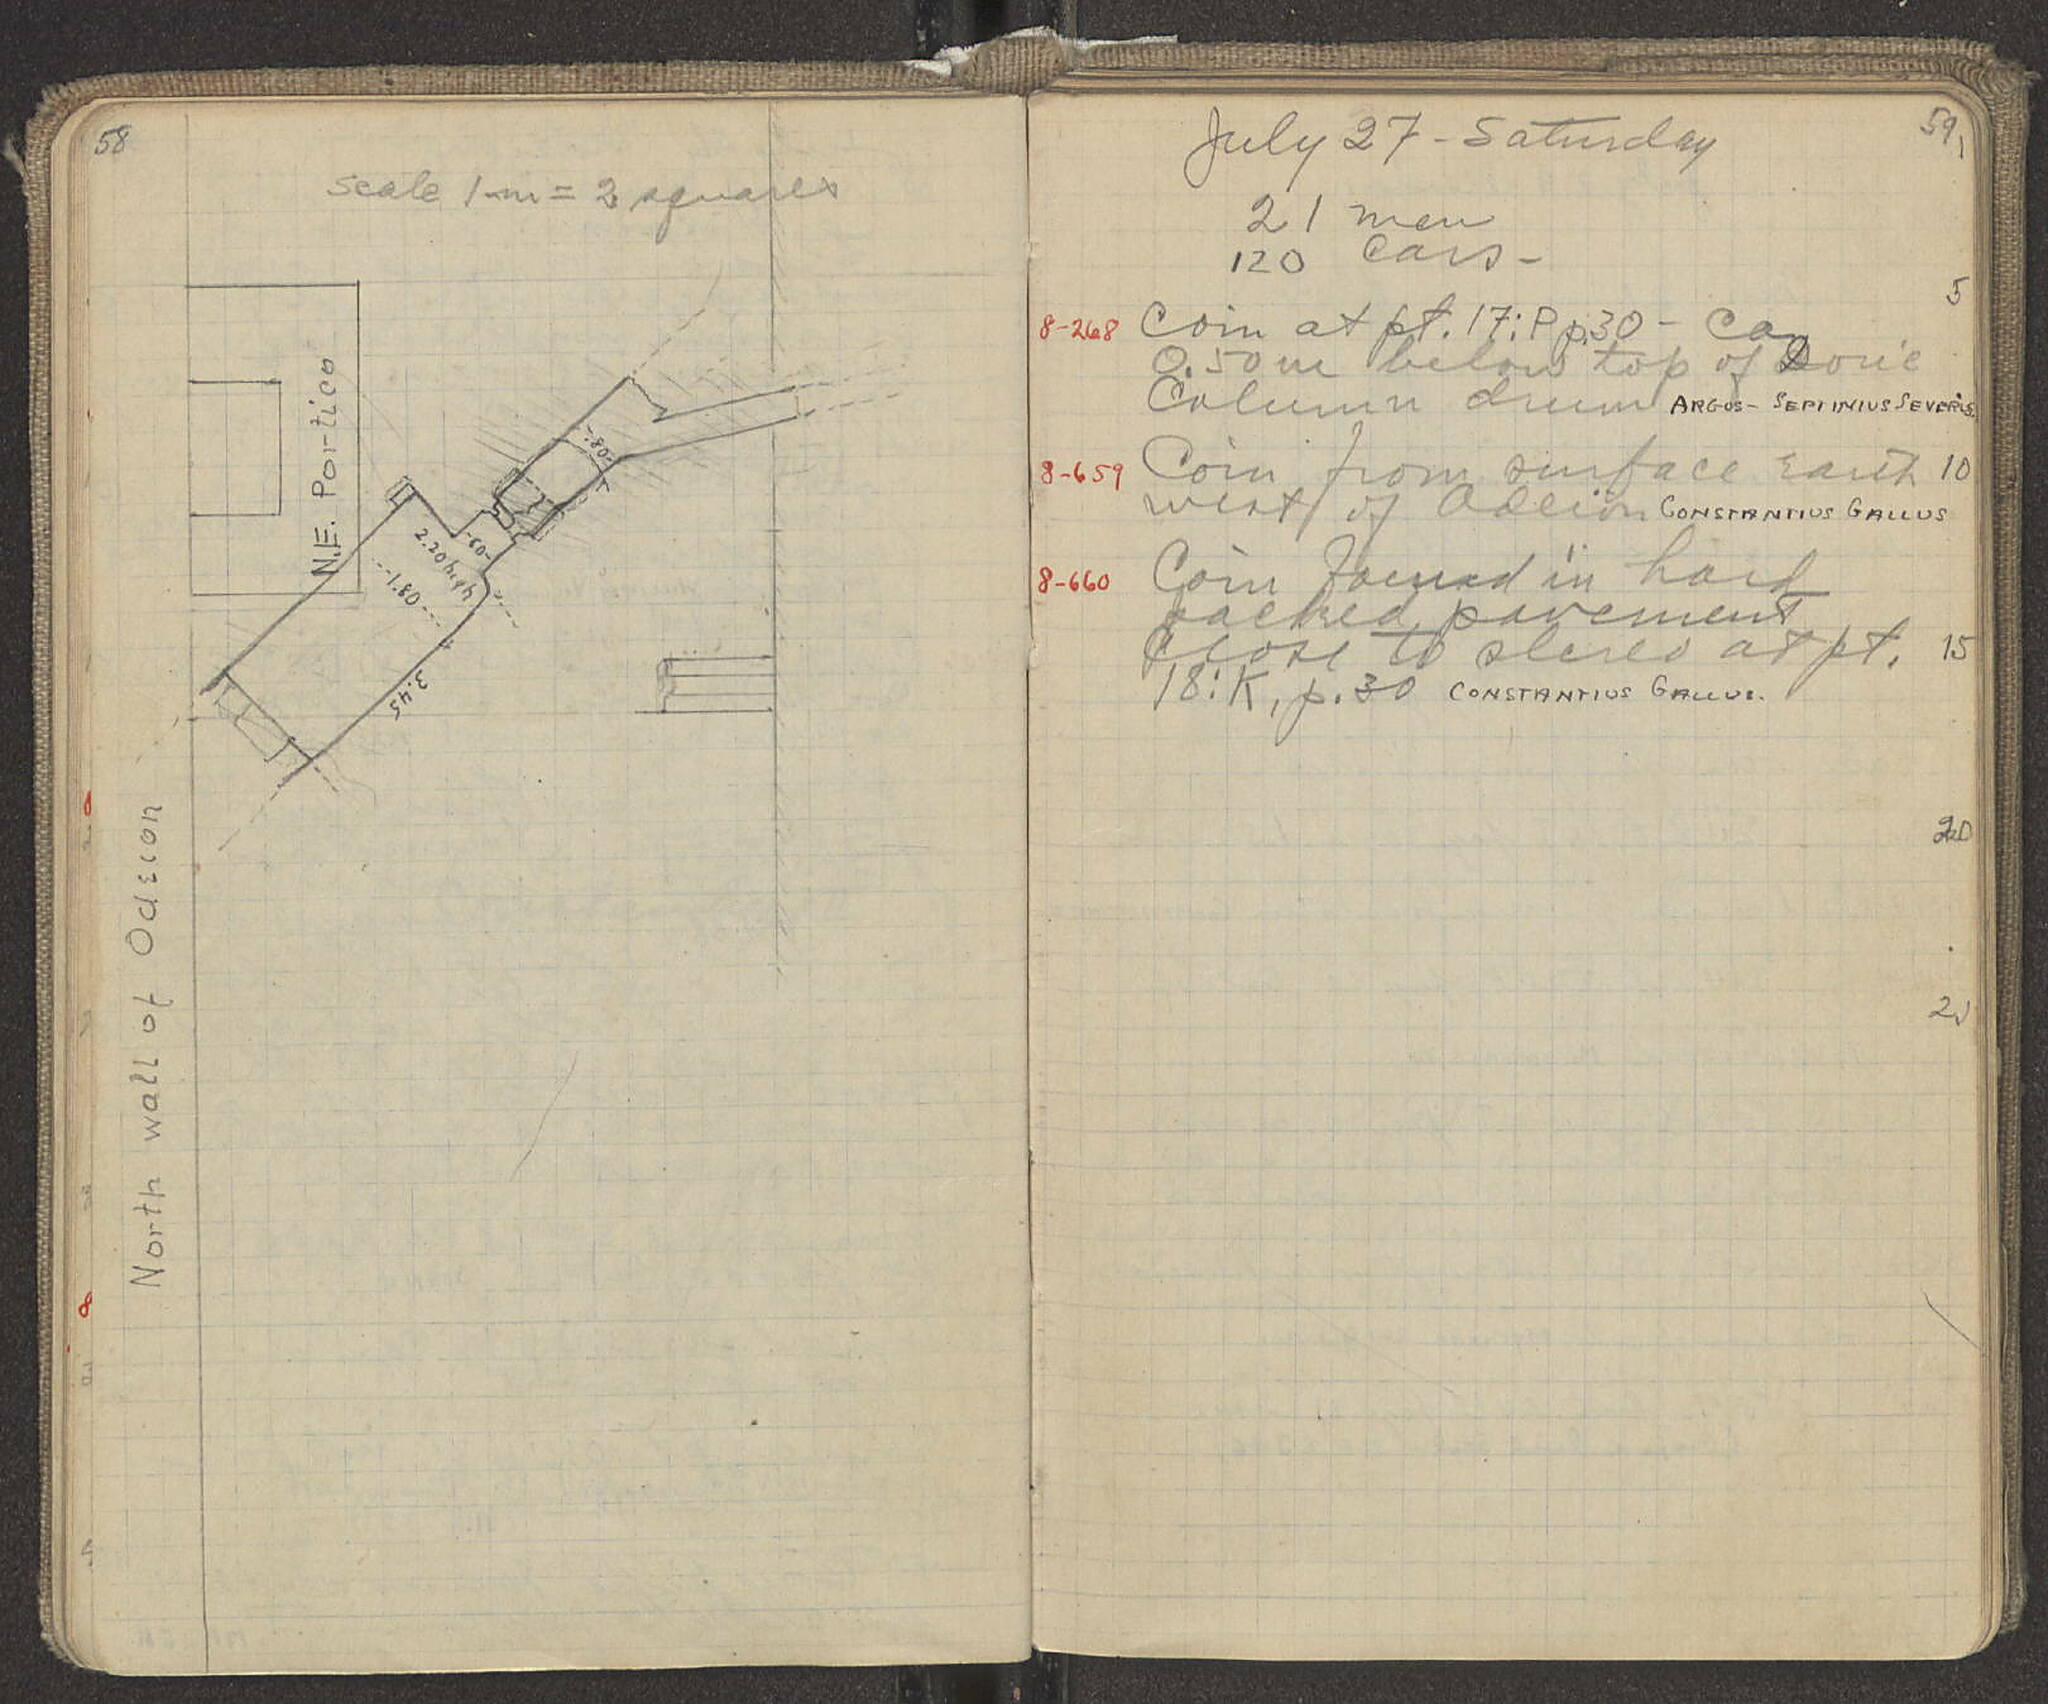 58
scale 1 m = 2 squares
N.E. Portico
.80
.60
2.20 high
1.80
3.45
North wall of Odeion
8
59
July 27 - Saturday
21 men
120 cars -
5
8-268 Coin at pt. 17:P p.30 - Ca
0.50 m below top of Doric
Column drum ARGOS - SEPTIMIUS SEVERUS
8-659 Coin from surface earth 10
west of Odeion CONSTANTIUS GALLUS
8-660 Coin found in hard
packed pavement
close to stereo at pt. 15
18:K, p.30 CONSTANTIUS GALLUS.
20